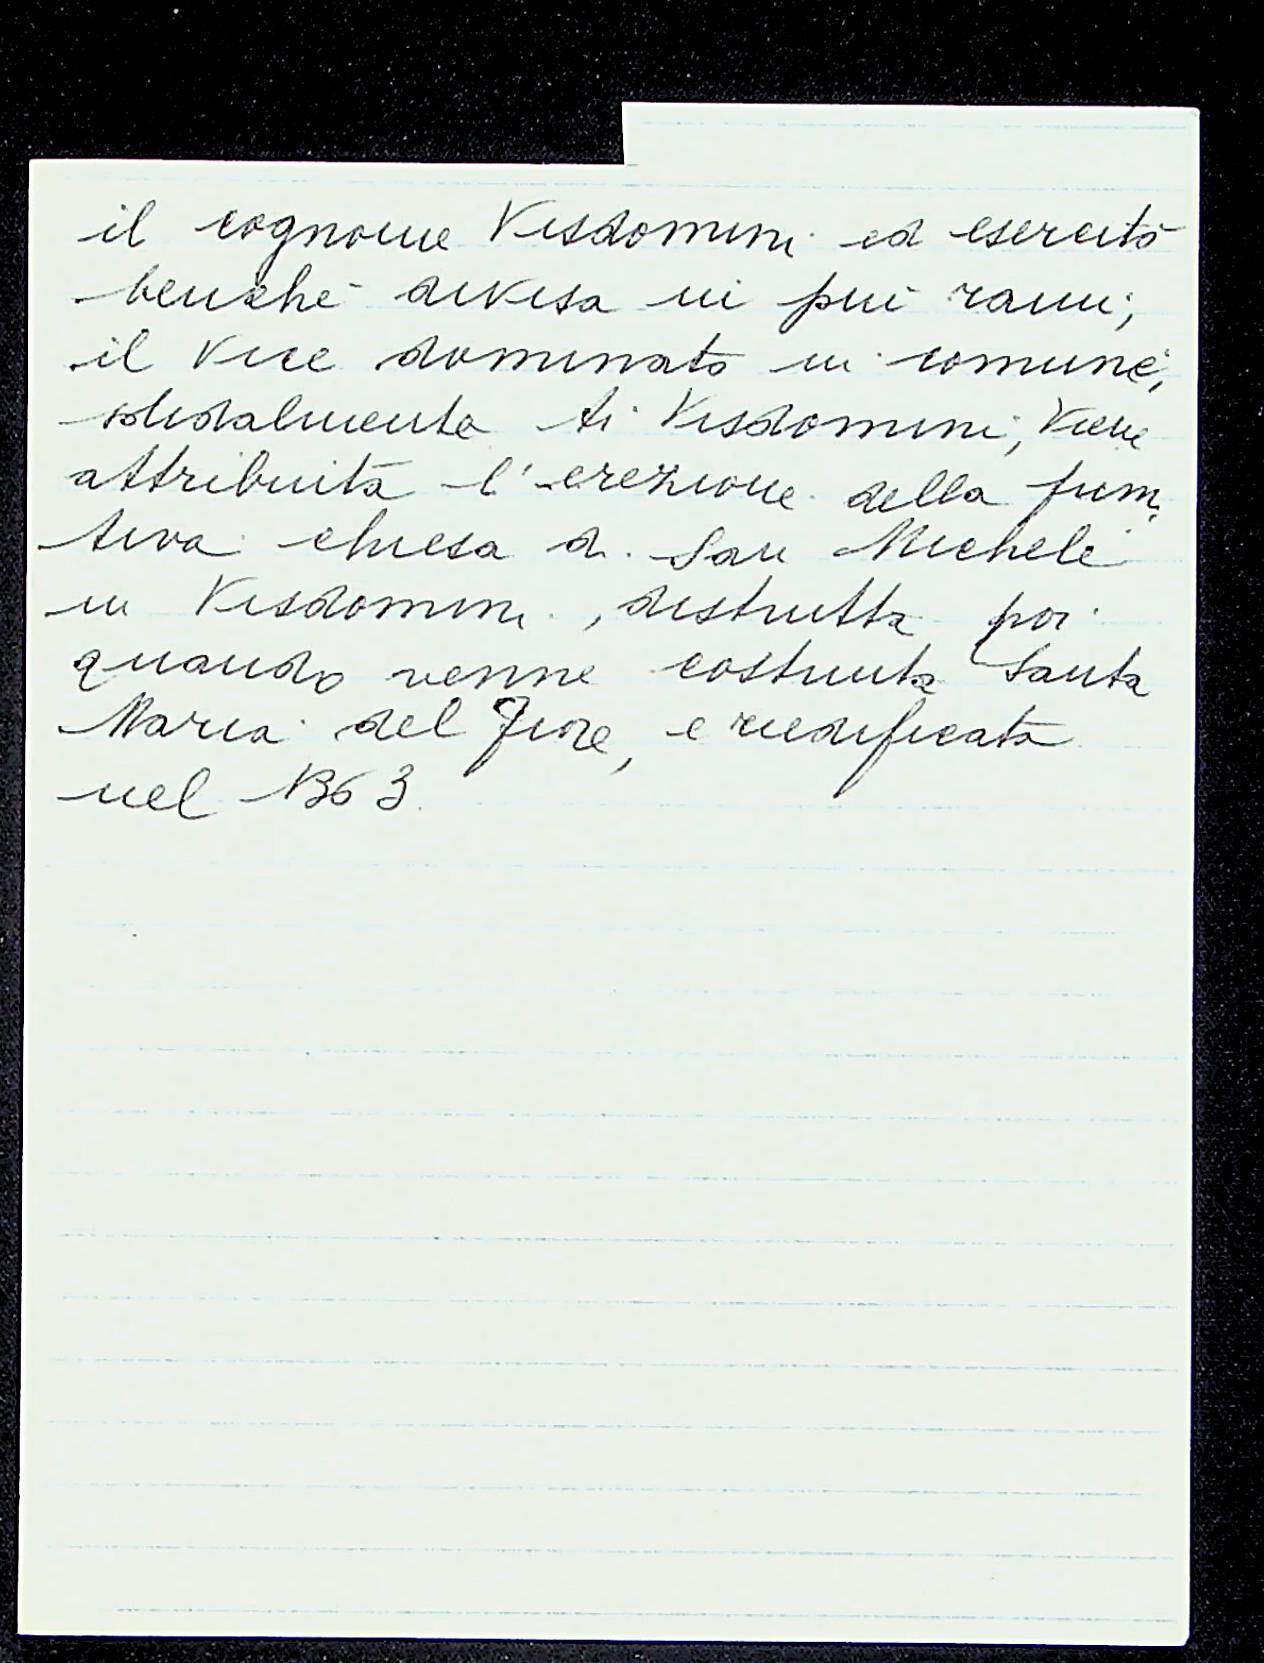 il cognome Visdomini ed esercitò
benché divisa in più rami,
il Vice dominato in comune,
solidalmente. Ai Visdomini, viene
attribuita l'erezione della primi
tiva chiesa di San Michele
in Visdomini, distrutta poi
quando venne costruita Santa
Maria del Fiore, e riedificata
nel 1363.